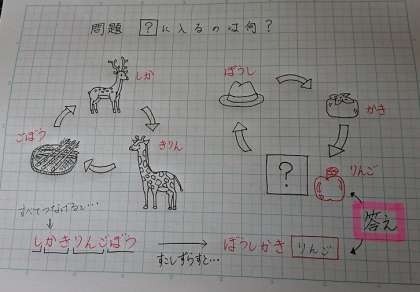 問題 ?に入るのは何?
しか
ぼうし
かき
ごぼう
きりん
?
りんご
すべてつなげると…
答え
しかきりんごぼう
すこしずらすと…
ぼうしかき りんご